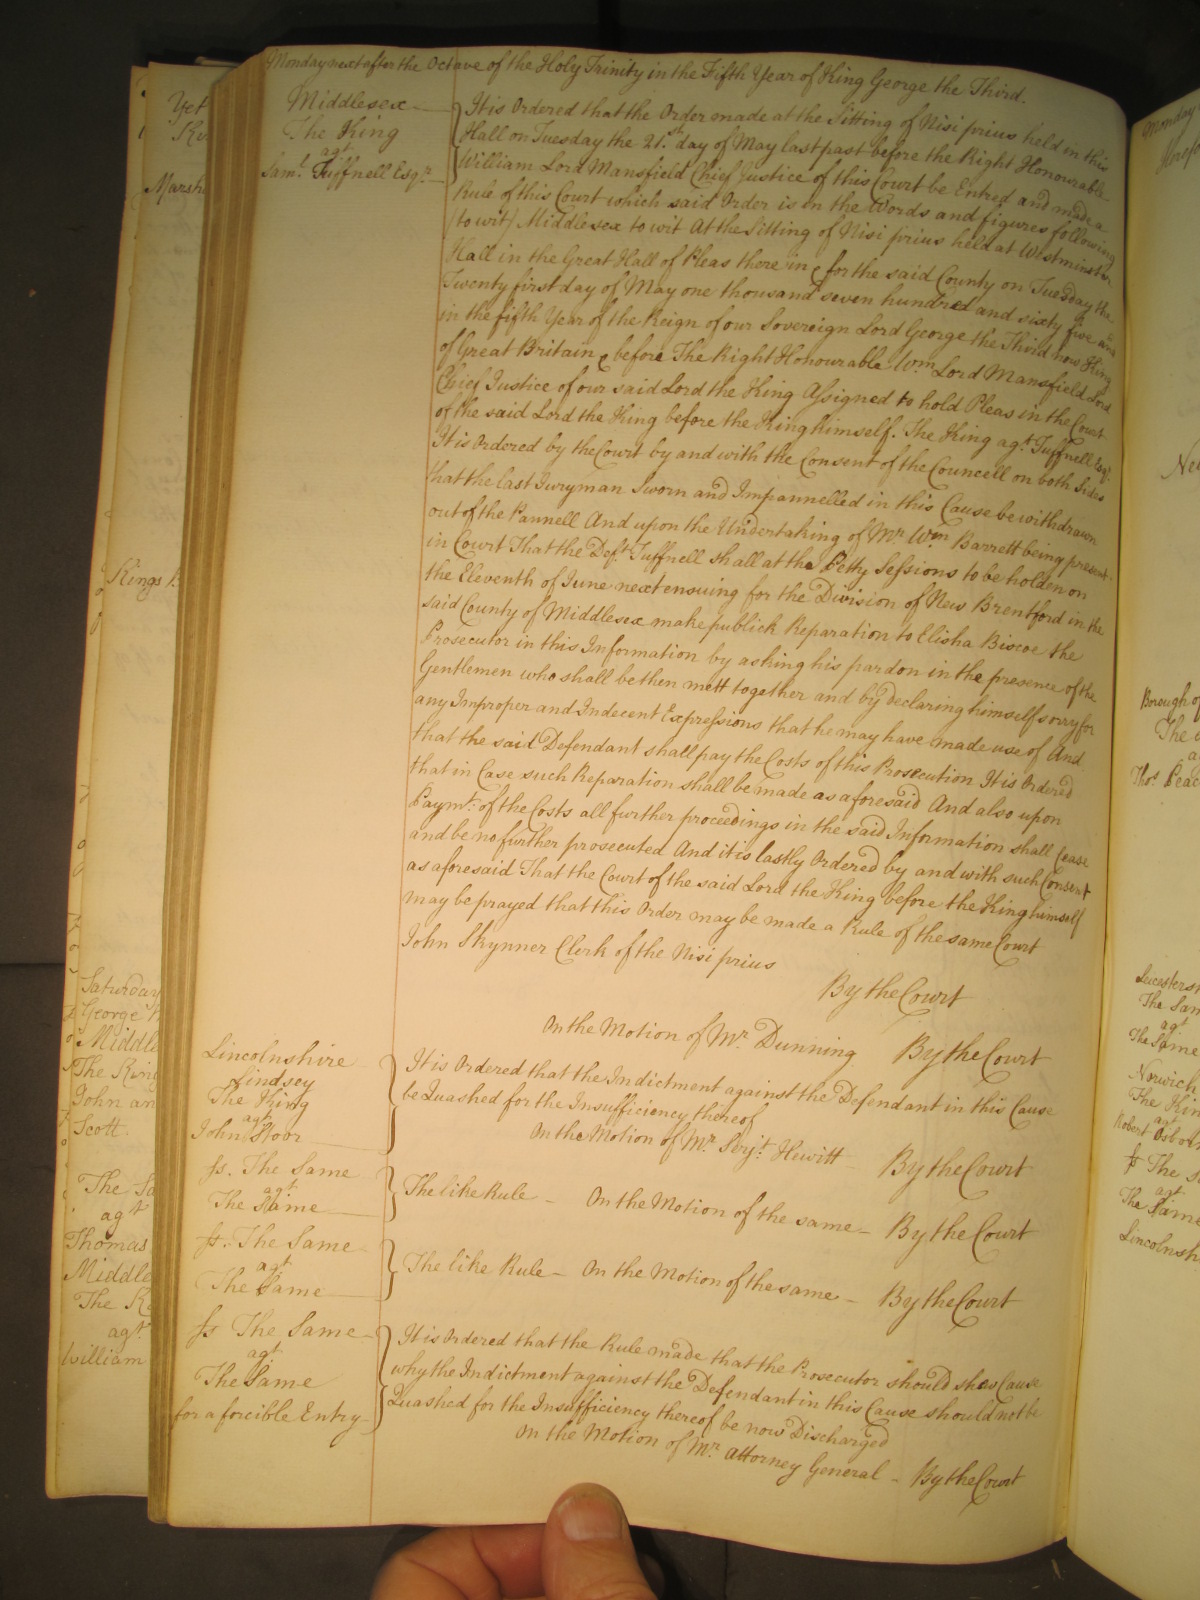 Monday next after the Octave of the Holy Trinity in the Fifth Year of King George the Third.
Middlesex
The King
agt
Saml. Tuffnell Esqr.
It is Ordered that the Order made at the Sitting of Nisi prius held in this
Hall on Tuesday the 21st. day of May last past before the Right Honourable
William Lord Mansfield Chief Justice of this Court be Entred and made a
Rule of this Court which said Order is in the Words and figures following
(to wit) Middlesex to wit At the Sitting of Nisi prius held at Westminster
Hall in the Great Hall of Pleas there in & for the said County on Tuesday the
Twenty first day of May one thousand seven hundred and sixty five and
in the fifth Year of the Reign of our Sovereign Lord George the Third now King
of Great Britain & before The Right Honourable Wm Lord Mansfield Lord
Chief Justice of our said Lord the King Assigned to hold Pleas in the Court
of the said Lord the King before the King himself. The King agt. Tuffnell Esqr.
It is Ordered by the Court by and with the Consent of the Councell on both Sides
that the last Juryman Sworn and Impannelled in this Cause be withdrawn
out of the Pannell And upon the Undertaking of Mr Wm Barrett being present
in Court That the Deft. Tuffnell shall at the Petty Sessions to be holden on
the Eleventh of June next ensuing for the Division of New Brentford in the
said County of Middlesex make publick Reparation to Elisha Biscoe the
Prosecutor in this Information by asking his pardon in the presence of the
Gentlemen who shall be then mett together and by declaring himself sorry for
any Improper and Indecent Expressions that he may have made use of And
that the said Defendant shall pay the Costs of this Prosecution It is Ordered
that in Case such Reparation shall be made as aforesaid And also upon
Paymt. of the Costs all further proceedings in the said Information shall Cease
and be no further prosecuted And it is lastly Ordered by and with such Consent
as aforesaid That the Court of the said Lord the King before the King himself
may be prayed that this Order may be made a Rule of the same Court
John Skynner Clerk of the Nisi prius
By the Court
On the Motion of Mr. Dunning By the Court
Lincolnshire
Lindsey
The King
agt
John Stoor
It is Ordered that the Indictment against the Defendant in this Cause
be Quashed for the Insufficiency thereof
On the Motion of Mr Serjt. Hewitt By the Court
ss. The Same
agt
The Same
The like Rule On the Motion of the same By the Court
ss. The Same
agt
The Same
The like Rule On the Motion of the same By the Court
ss The Same
agt
The Same
for a forcible Entry
It is Ordered that the Rule made that the Prosecutor should shew Cause
why the Indictment against the Defendant in this Cause should not be
Quashed for the Insufficiency thereof be now Discharged
On the Motion of Mr. Attorney General By the Court